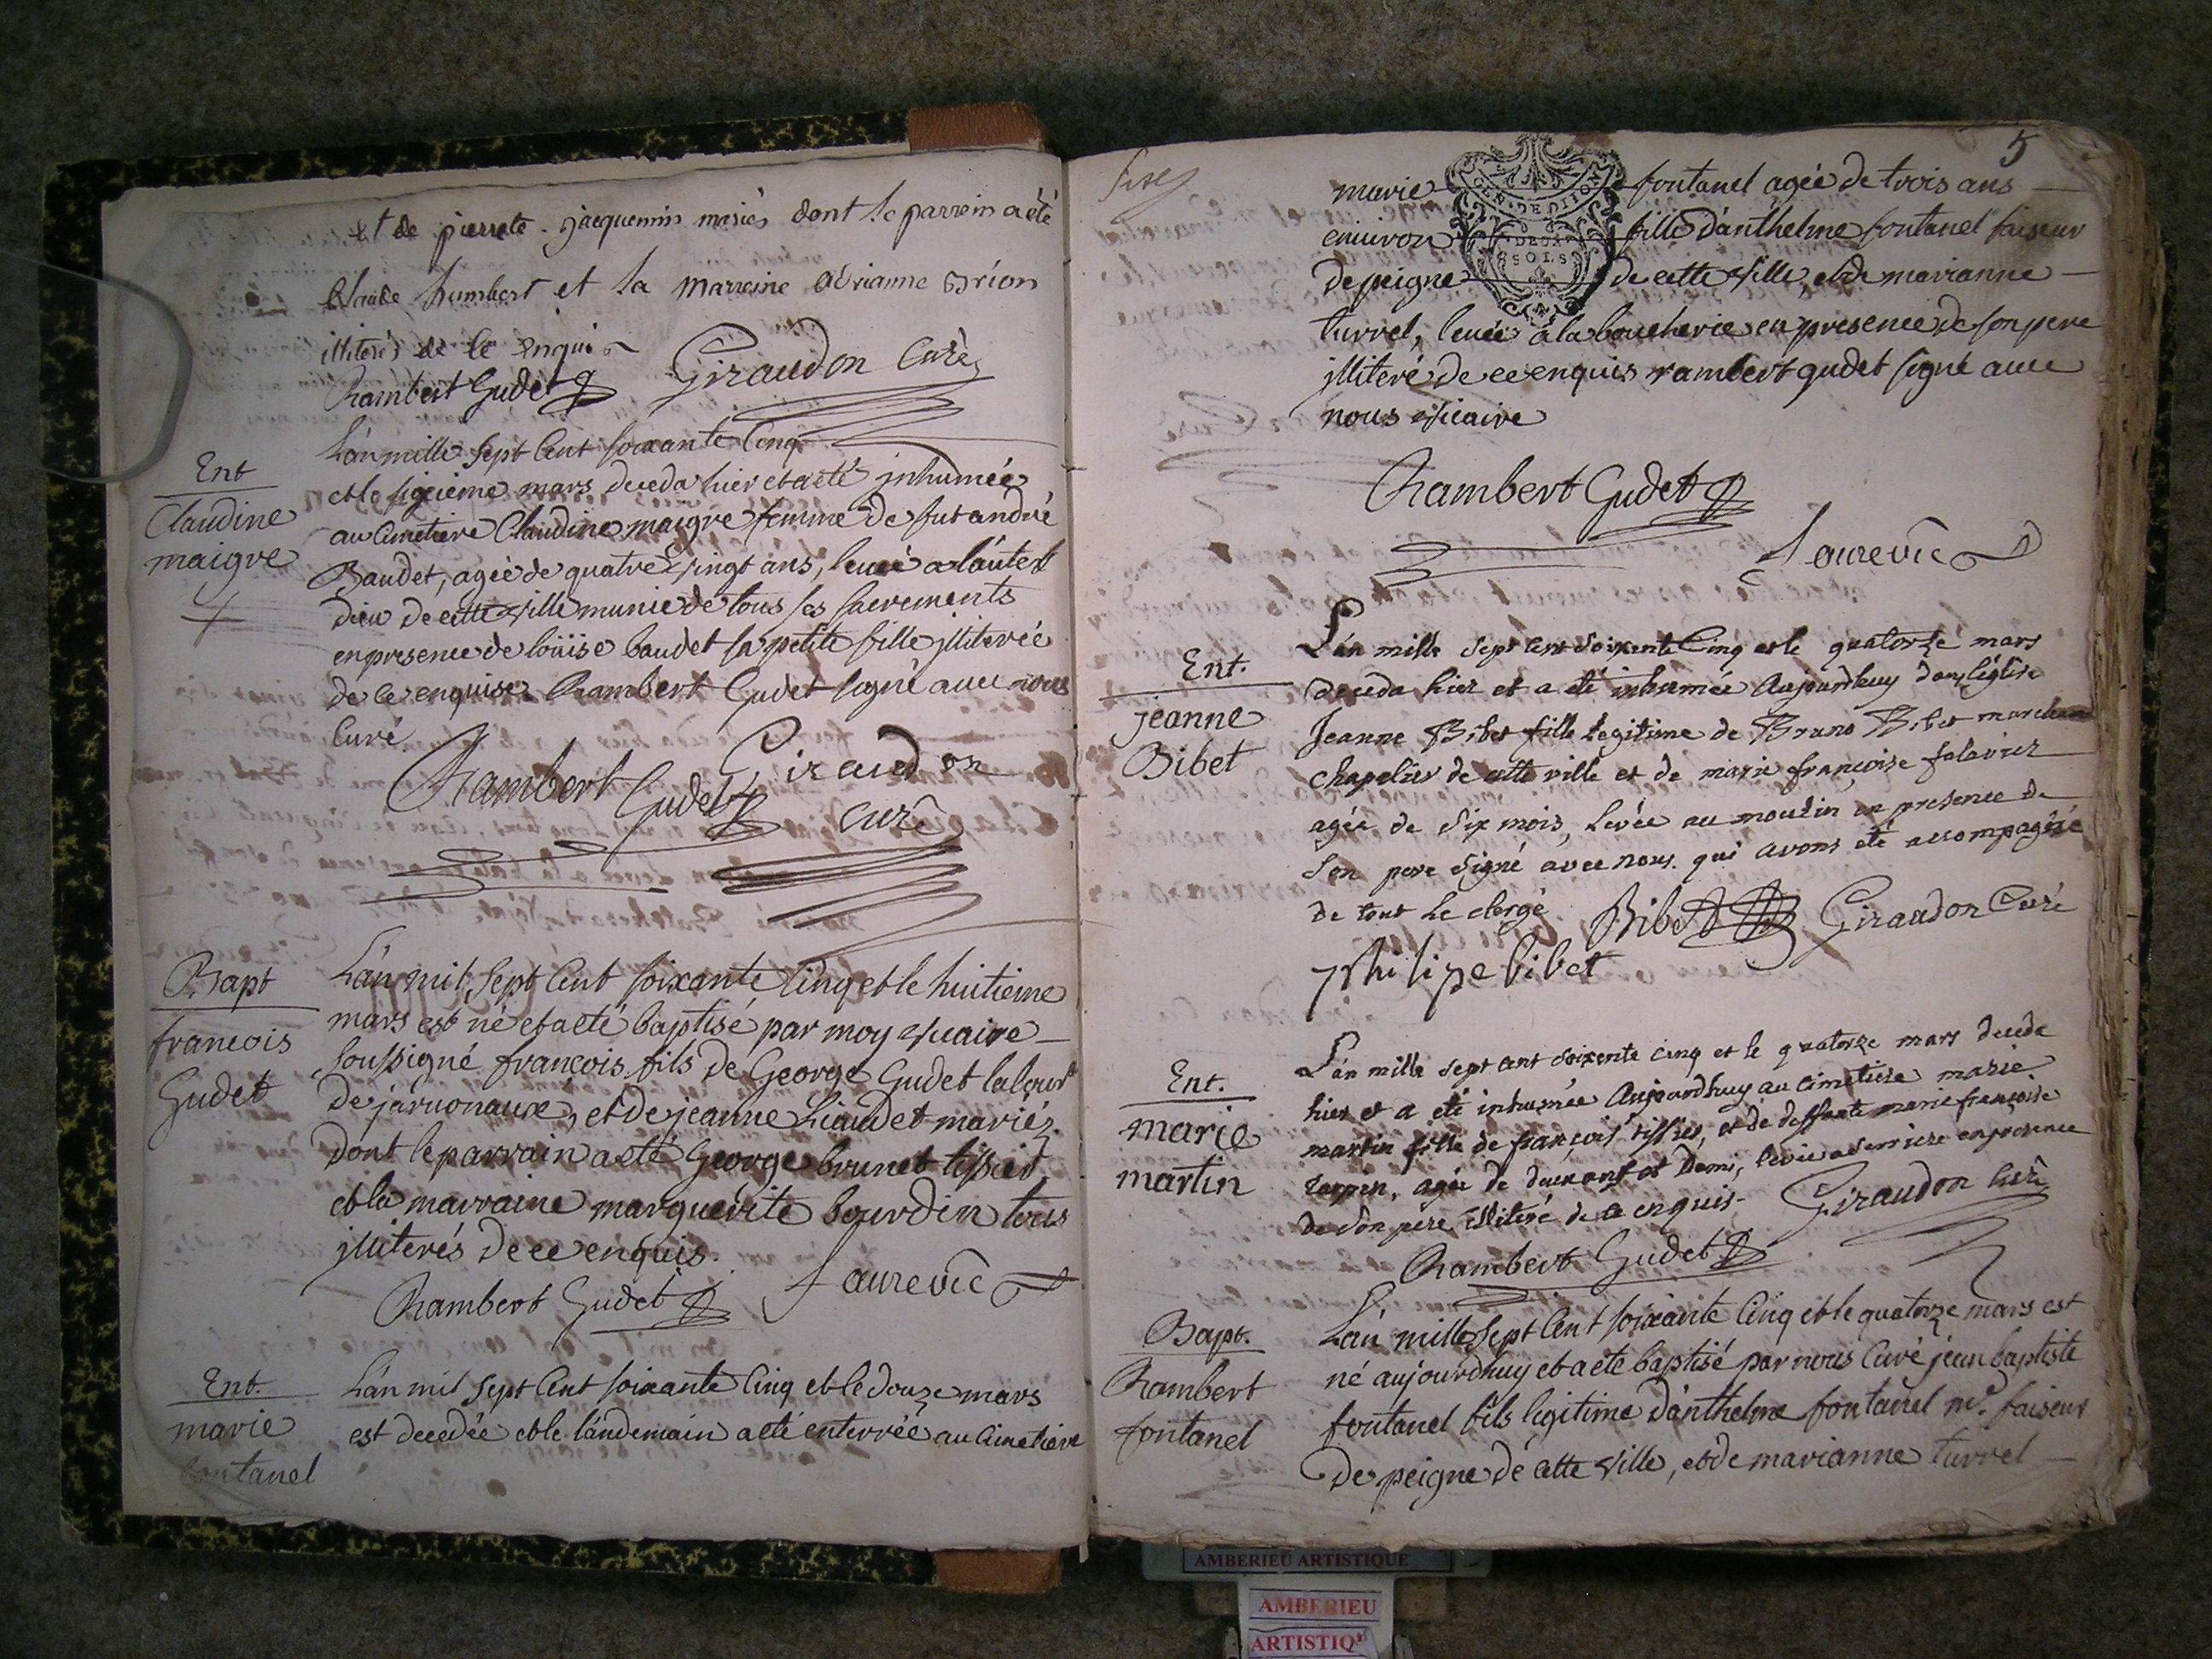 et de pierrete jacquemin mariés dont le parrein a été
Claude humbert et la Marreine adrianne Brion
illiterés de ce enquis
Rambert Gudet Giraudon Curé
Ent
Claudine
maigre
L'an mille sept cent soixante cinq
et le sizieme mars deceda hier et a eté jnhumée
au Cimetiere Claudine maigre femme de fut andré
Baudet, agée de quatre vingt ans, levée a l'autel
dieu de cette ville munie de tous ses sacrements
en presence de loüise baudet sa petite fille jlliterée
de ce enquise Rambert Gudet signé avec nous
Curé
Rambert Gudet Giraudon
curé
Bapt
francois
Gudet
L'an mil sept cent soixante cinq et le huitieme
mars est né et a eté baptisé par moy vicaire
soussigné françois fils de George Gudet labour
de jarvonaux, et de jeanne Liaudet mariéz
dont le parrain a eté George brunet tissier
et la marraine marguerite bourdin tous
jlliterés de ce enquis.
Rambert Gudet Faure vic
Ent.
marie
fontanel
L'an mil sept cent soixante cinq et le douze mars
est decedée et le landemain a eté enterrée au Cimetiere
5
GEN. DE DIJON
SOLS
marie fontanel agée de trois ans
environ fille d'anthelme fontanel faiseur
de peigne de cette ville, et de marianne
turrel, levée a la boucherie en presence de son pere
jlliteré de ce enquis rambert gudet signé avec
nous vicaire
Rambert Gudet
Faure vic
Ent.
jeanne
Bibet
L'an mille sept cent soixente Cinq et le quatorze mars
deceda hier et a eté inhumée Aujourdhuy dans l'église
Jeanne Bibet fille legitime de Bruno Bibet marchand
chapelier de cette ville et de marie françoise falavier
agée de six mois, levée au moulin en presence de
son pere signé avec nous qui avons eté accompagné
de tout le clergé Bibet Giraudon Curé
philipe bibet
Ent.
marie
martin
L'an mille sept cent soixente cinq et le quatorze mars decede
hier et a eté inhumée Aujourdhuy au cimetiere marie
martin fille de françois tissier, et de deffunte marie françoise
, agée de deux ans et demi, levée a en presence
de son pere illiteré de ce enquis. Giraudon curé
Rambert Gudet
Bapt.
Rambert
fontanel
L'an mille sept cent soixante Cinq et le quatorze mars est
né aujourdhuy et a eté baptisé par nous Curé jean baptiste
fontanel fils legitime d'anthelme fontanel me. faiseur
de peigne de cette ville, et de marianne turrel
AMBERIEU ARTISTIQUE
AMBERIEU
ARTISTIQ